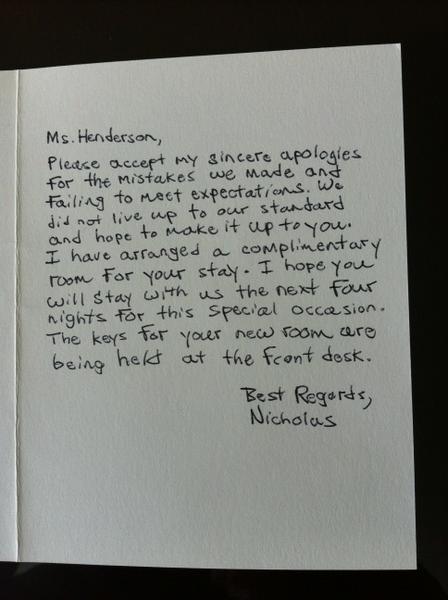 Ms. Henderson,
Please accept my sincere apologies
for the mistakes we made and
failing to meet expectations. We
did not live up to our standard
and hope to make it up to you.
I have arranged a complimentary
room for your stay. I hope you
will stay with us the next four
nights for this special occasion.
The keys for your new room are
being held at the front desk.
Best Regards,
Nicholas